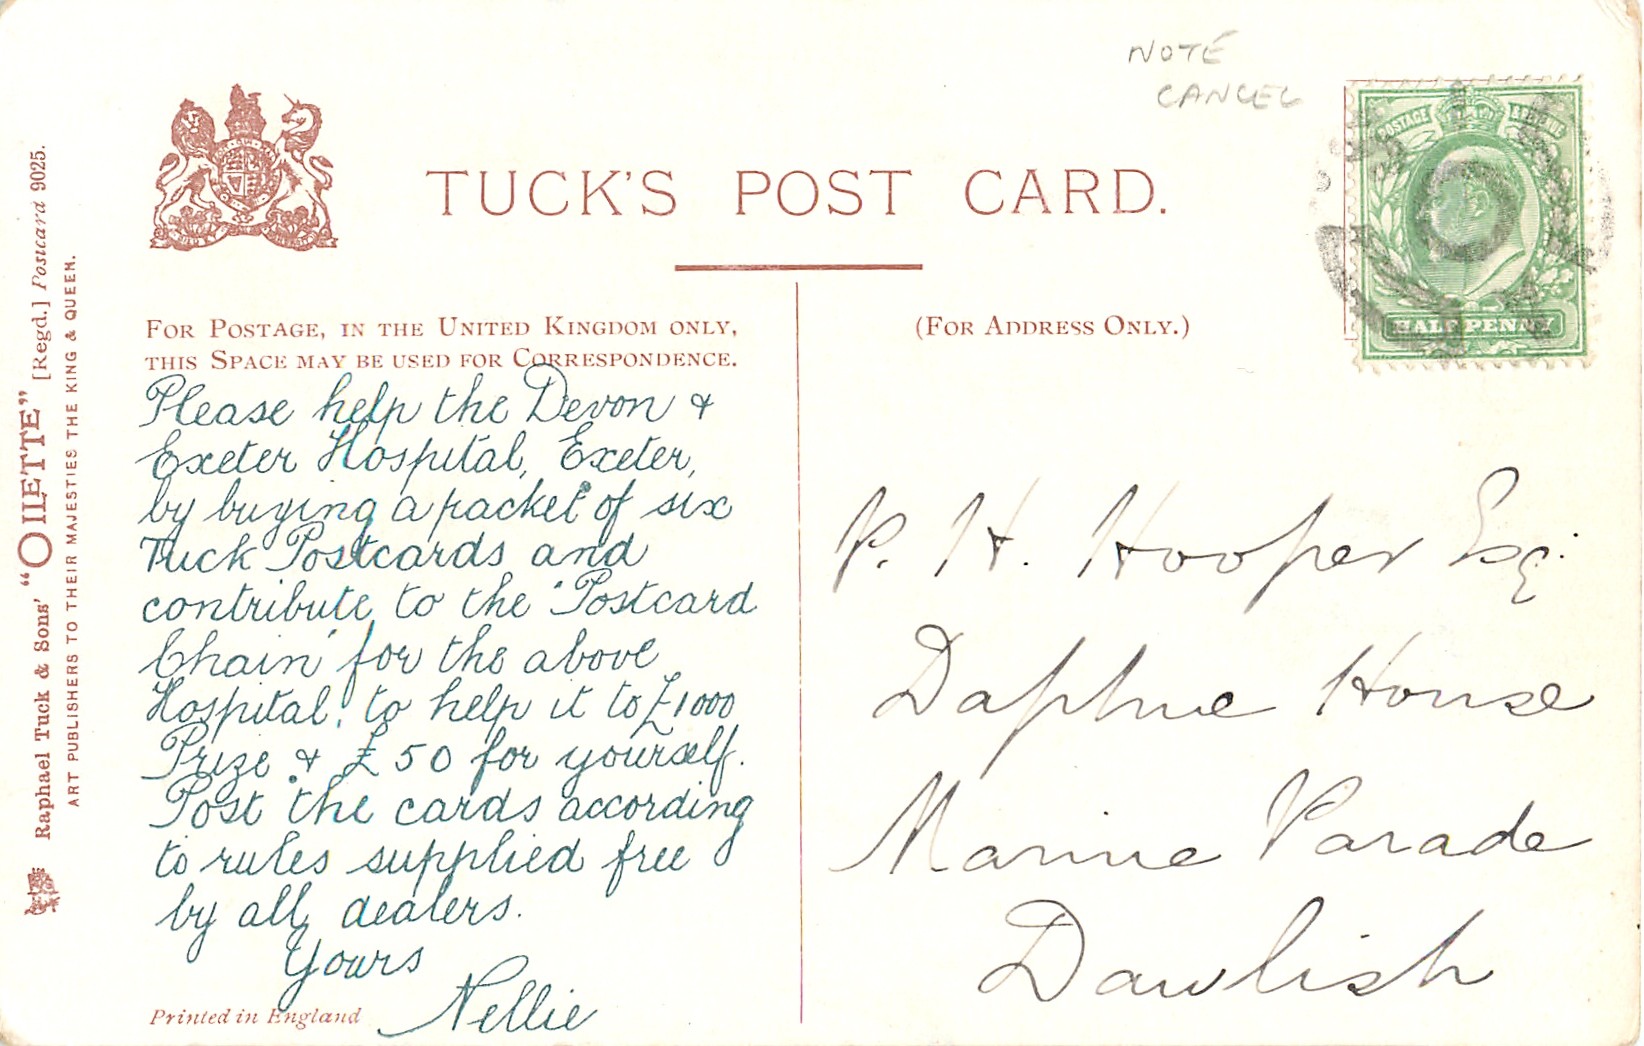 NOTE
CANCEL
POSTAGE REVENUE
HALFPENNY
TUCK'S POST CARD.
FOR POSTAGE, IN THE UNITED KINGDOM ONLY,
THIS SPACE MAY BE USED FOR CORRESPONDENCE.
(FOR ADDRESS ONLY.)
Please help the Devon &
Exeter Hospital, Exeter,
by buying a packet of six
Tuck Postcards and
contribute to the 'Postcard
Chain' for the above
Hospital, to help it to £1000
Prize & £50 for yourself.
Post the cards according
to rules supplied free
by all dealers.
Yours
Nellie
P. H. Hooper Esq:
Daphne House
Marine Parade
Dawlish
Printed in England
Raphael Tuck & Sons' "OILETTE" [Regd.] Postcard 9025.
ART PUBLISHERS TO THEIR MAJESTIES THE KING & QUEEN.